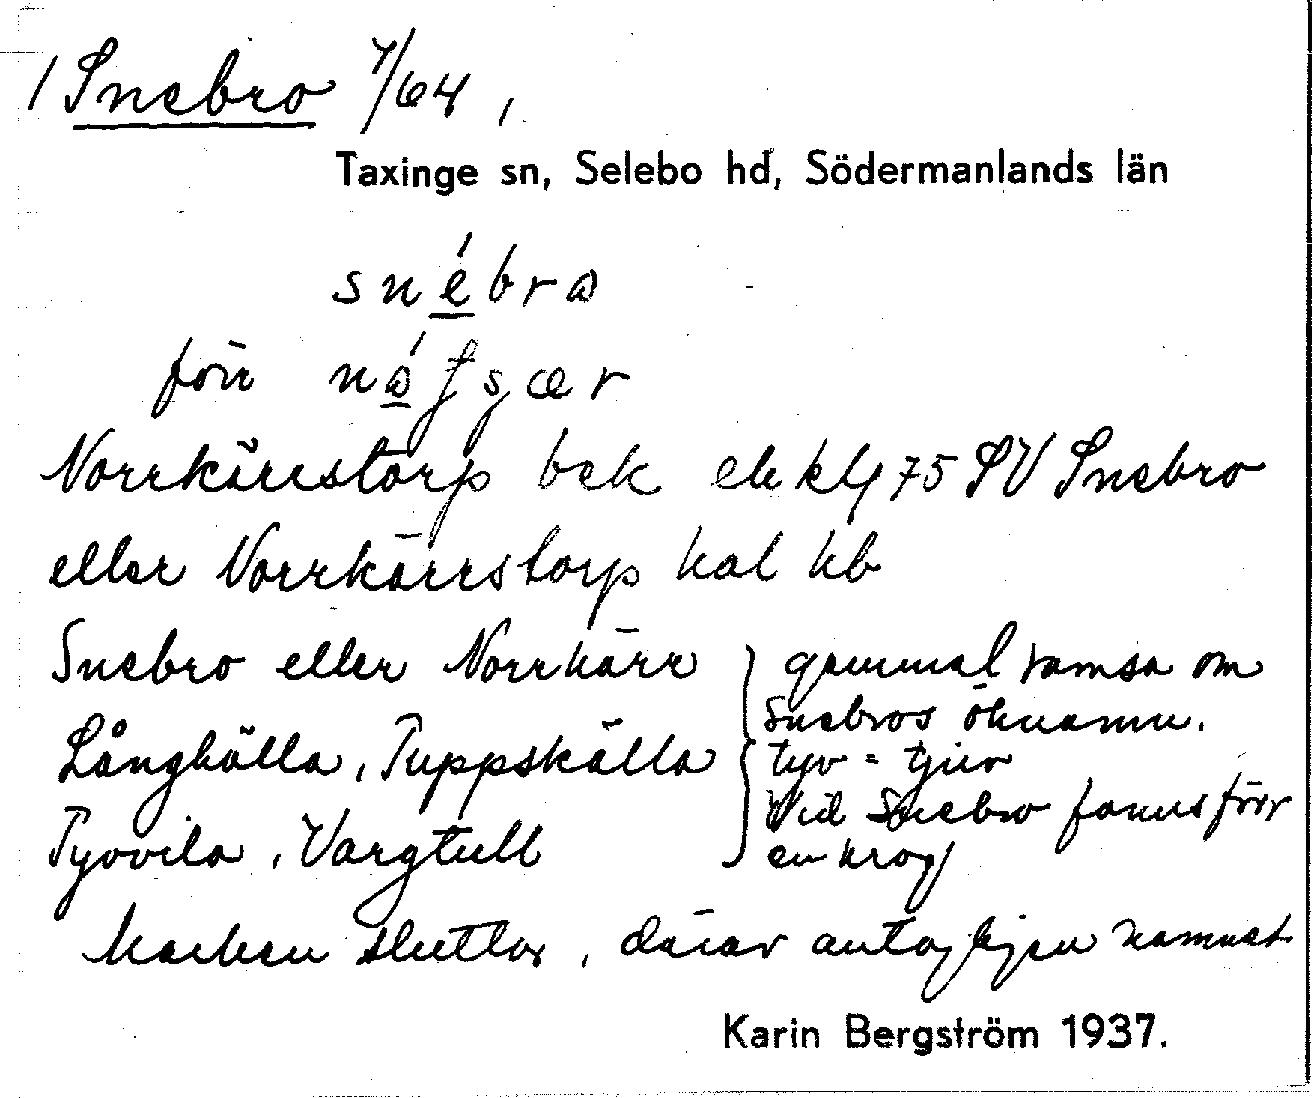 1 Snebro 7/64,
Taxinge sn, Selebo hd, Södermanlands län
snébro
förr
Norrkärrstorp bek ek kbl 75 SV Snebro
eller Norrkärrstorp hal hb
Snebro eller Norrkärr } gammal ramsa om
Snebros öknamn.
Långhälla, Tuppskälla
tyv = tjuv
Vid Snebro fanns förr
Tyvvila, Vargtull
en krog
Marken sluttar, därav antagligen namnet
Karin Bergström 1937.